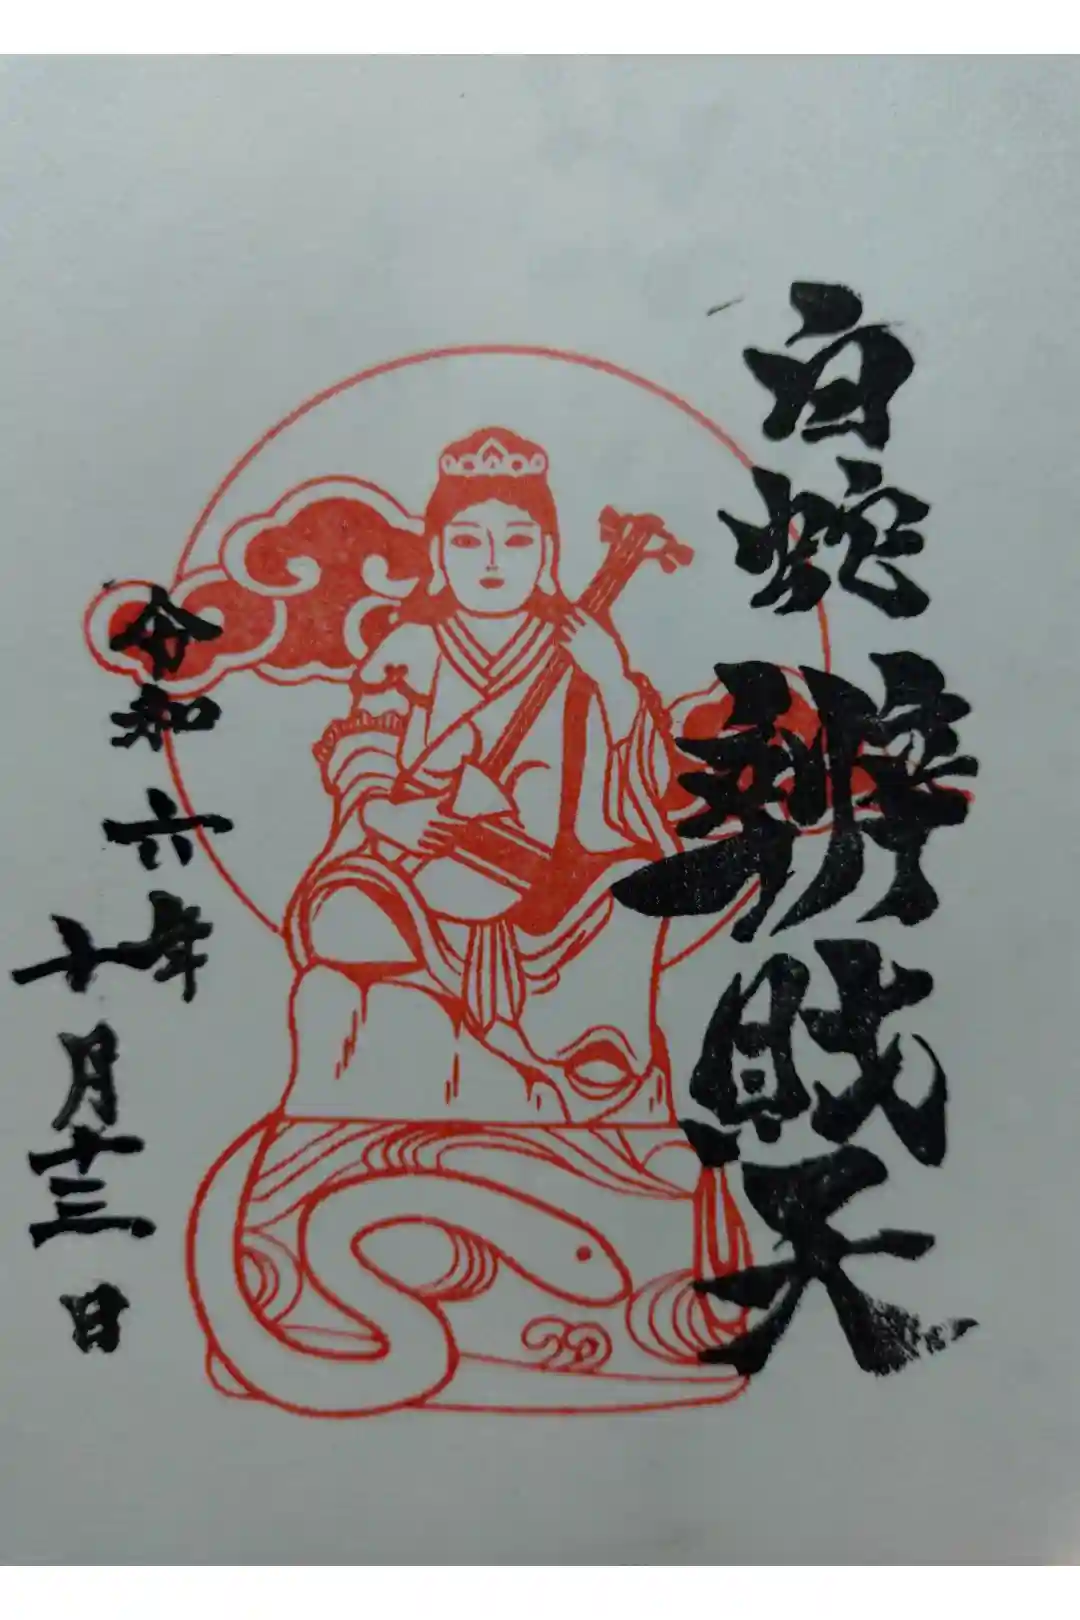 白蛇辨財天
令和六年
十月十三日